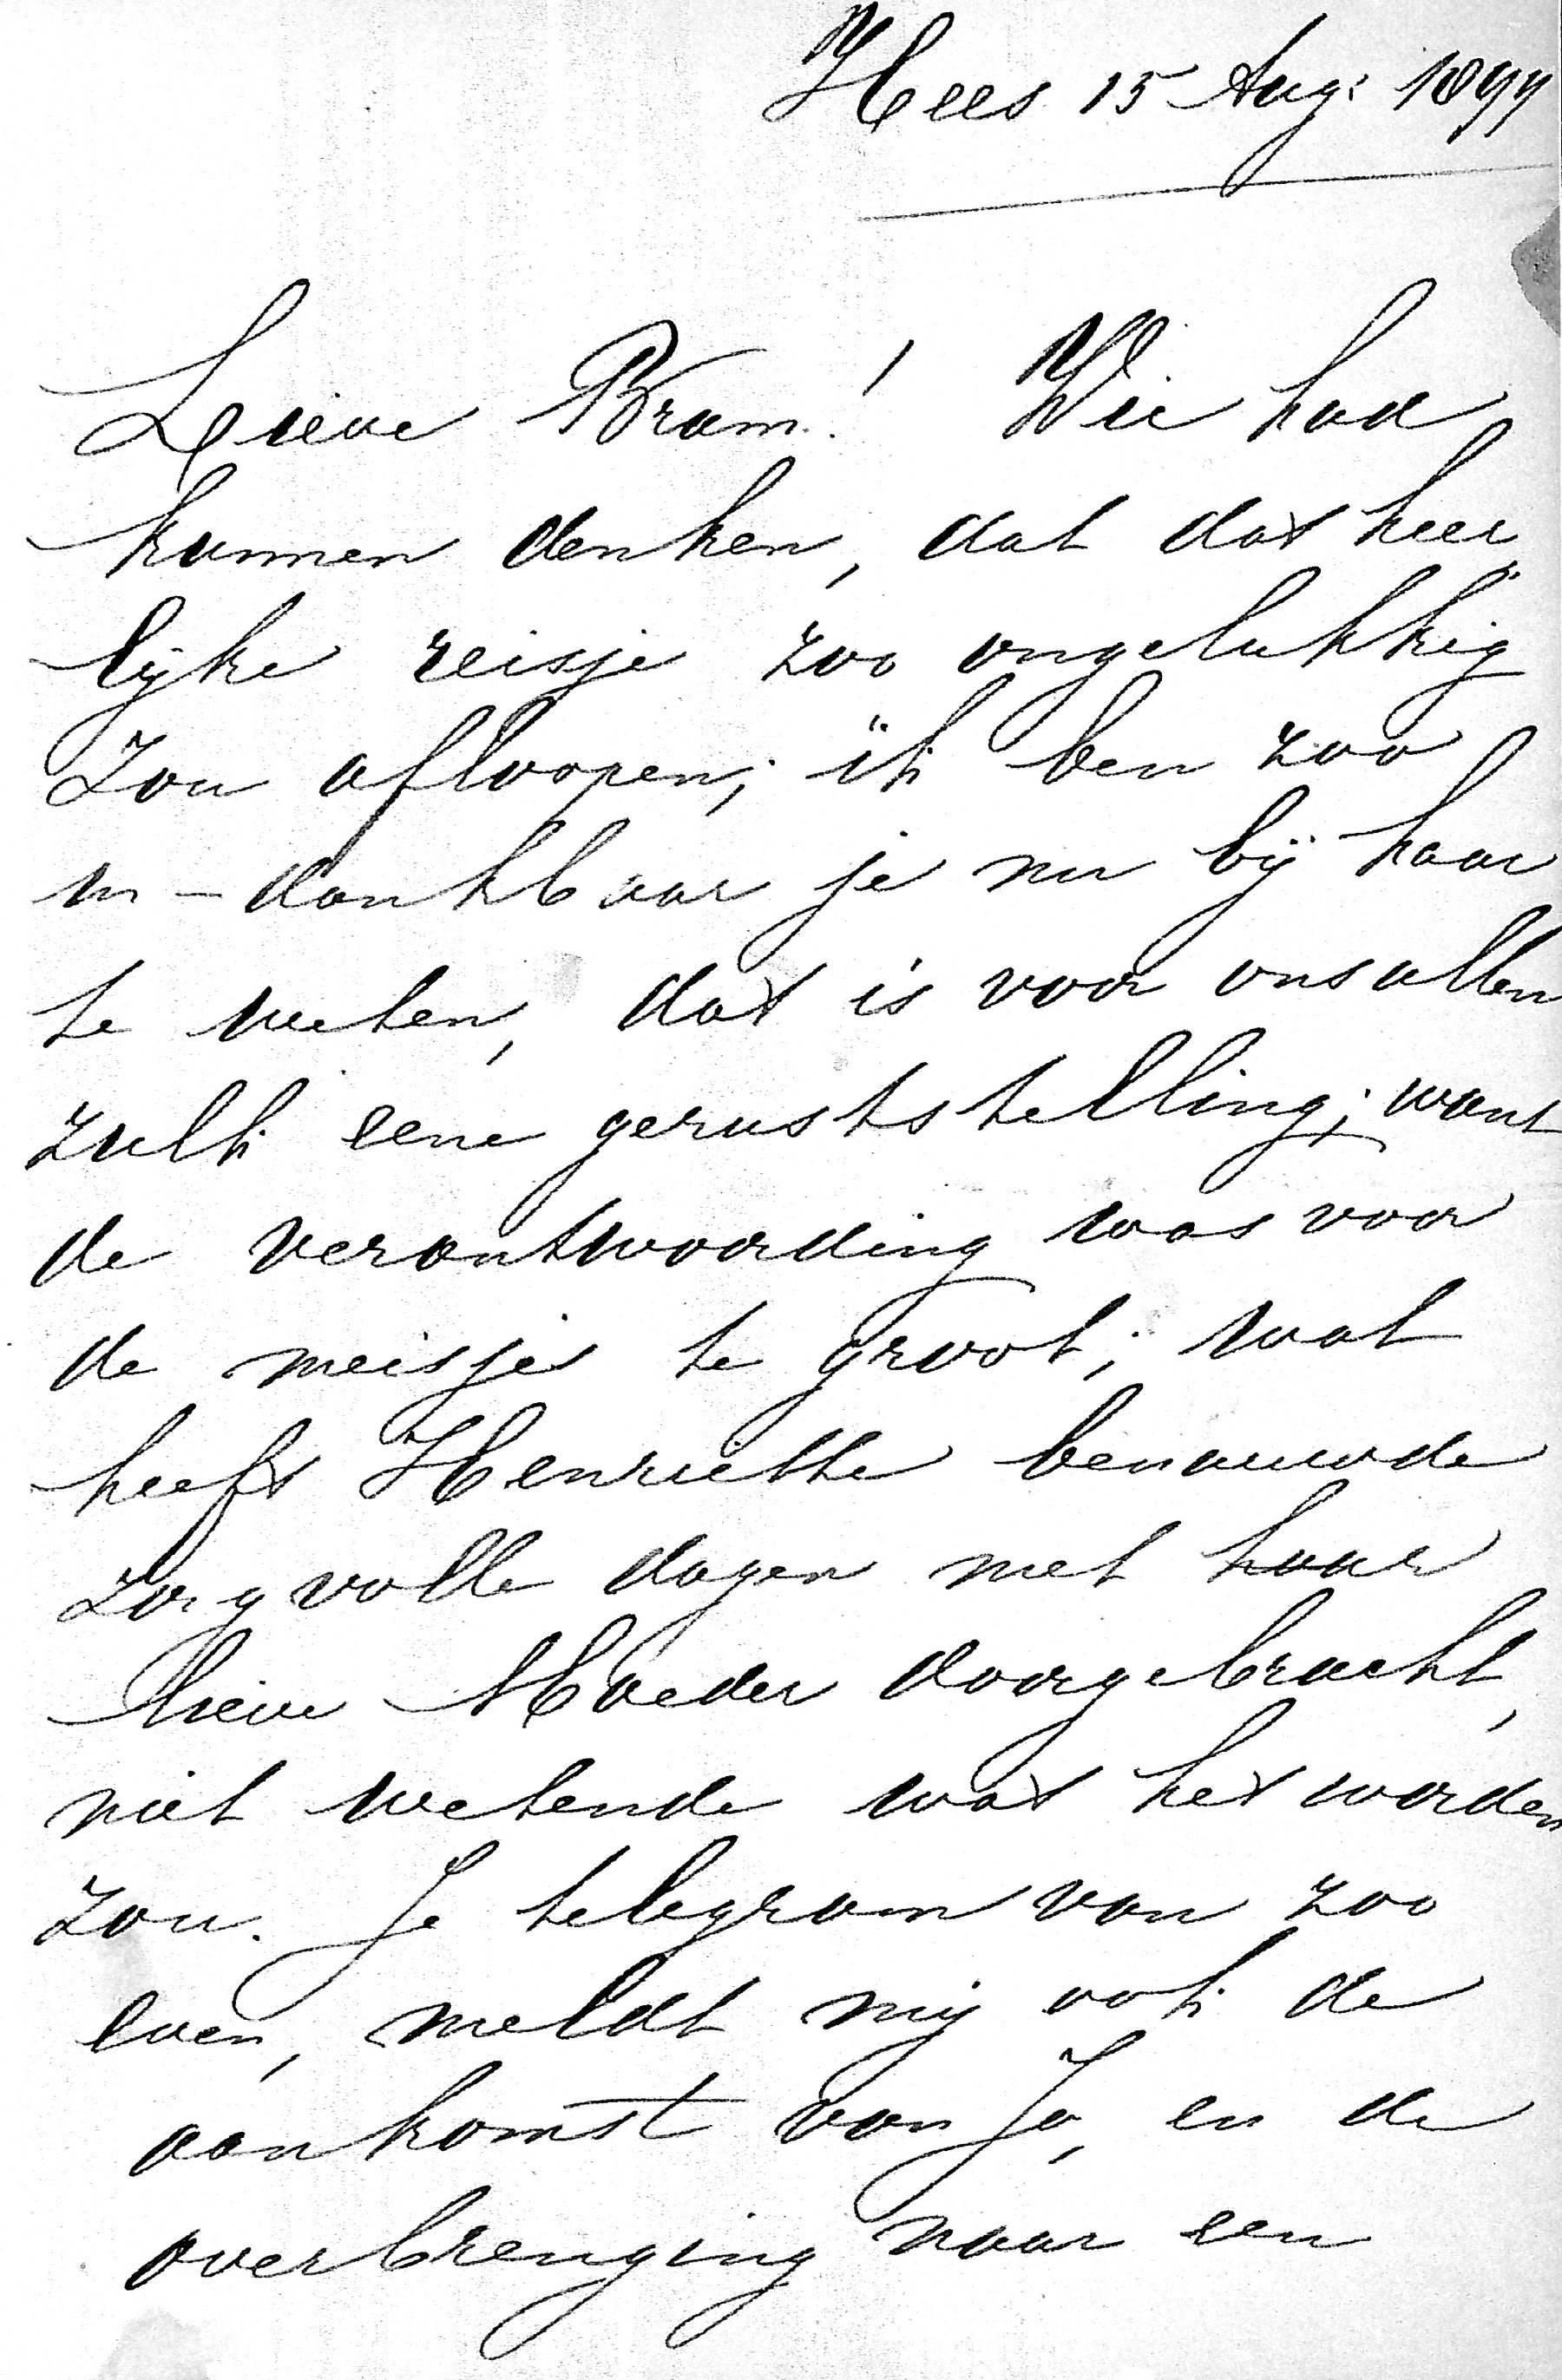 Hees 15 Aug: 1899
Lieve Bram! Wie had
kunnen denken, dat dat heer„
lijke reisje zoo ongelukkig
zou afloopen; ik ben zoo
in-dankbaar je nu bij haar
te weten, dat is voor ons allen
zulk eene geruststelling; want
de verantwoording was voor
de meisjes te groot; wat
heeft Henriette benauwde
zorgvolle dagen met haar
lieve Moeder doorgebracht,
niet wetende wat het worden
zou. Je telegram van zoo
even, meldt mij ook de
aankomst van Jo, en de
overbrenging naar een